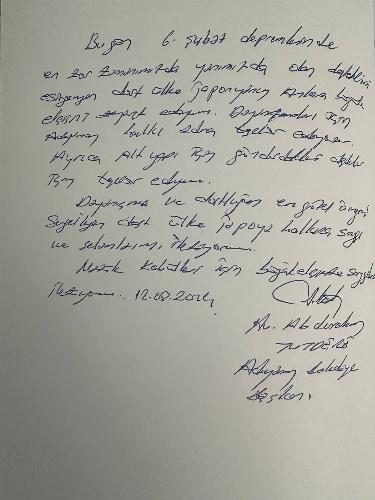 Bugün 6. şubat depremlerinde
en zor zamanımızda yanımızda olan desteklerini
esirgemeyen dost ülke japonyanın Ankara büyük
elçisini ziyaret ediyorum. Dayanışmaları için
Adıyaman halkı adına teşekkür ediyorum.
Ayrıca Altyapı için gönderdikleri destekler
için teşekkür ediyorum.
Dayanışma ve dostluğun en güzel örneğini
Sergileyen dost ülke japonya halkına saygı
ve selamlarımı iletiyorum.
Nazik Kabulleri için büyükelçimize saygılar
iletiyorum. 12.08.2024
Av. Abdurrahman
TUTDERE
Adıyaman Belediye
Başkanı